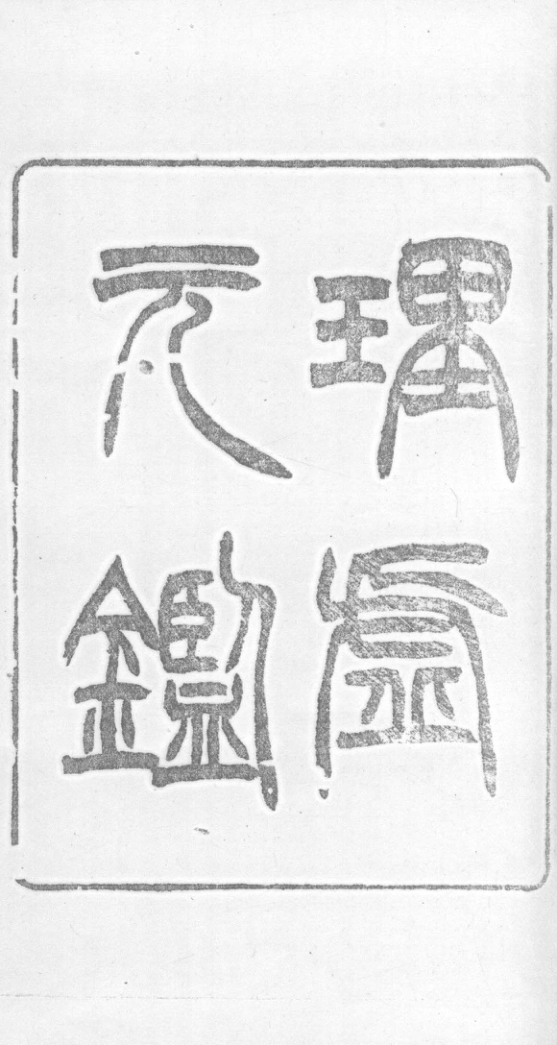 理虛
元鑑